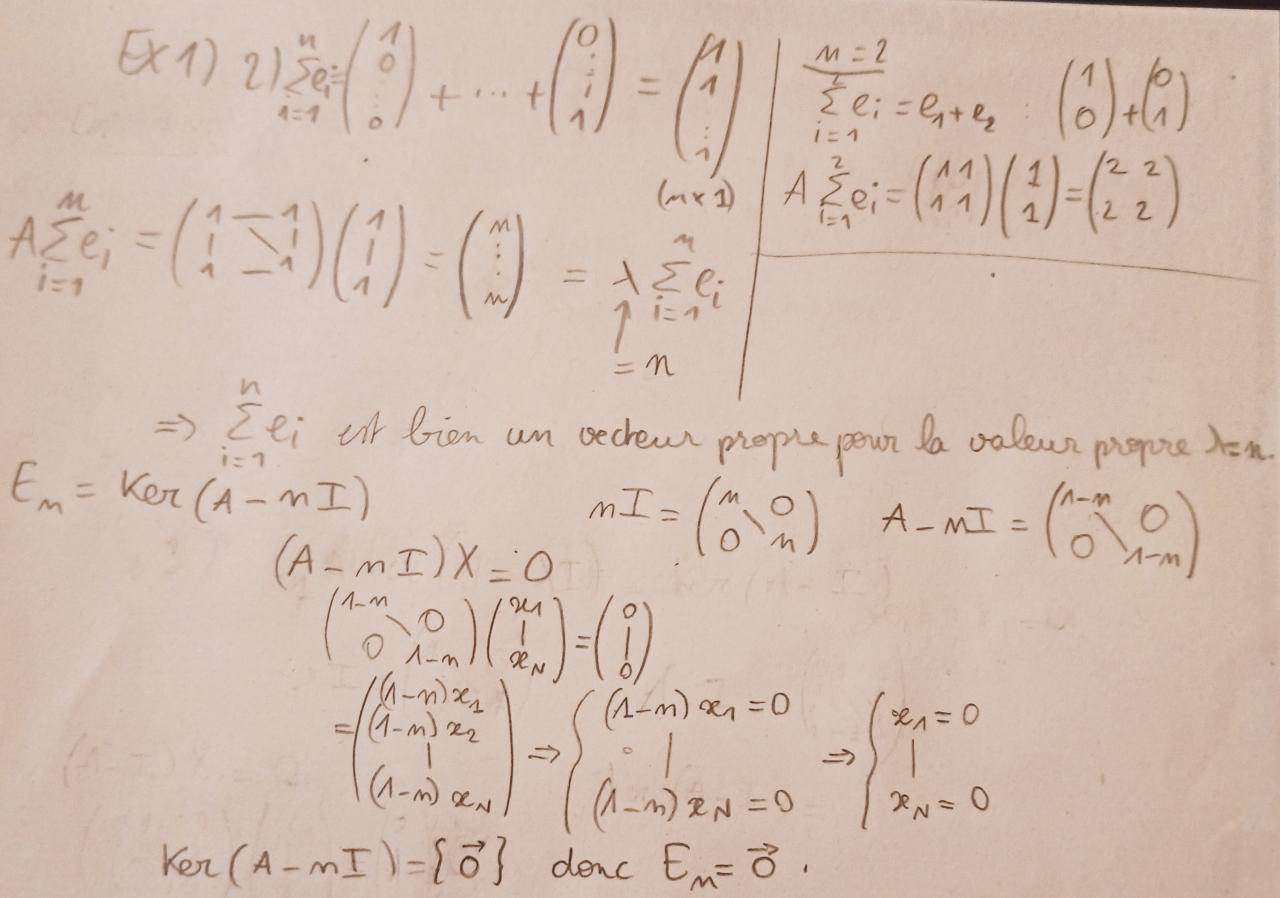 Ex 1) 2) $\sum_{i=1}^{n} e_i = \begin{pmatrix} 1 \\ 0 \\ \vdots \\ 0 \end{pmatrix} + \cdots + \begin{pmatrix} 0 \\ \vdots \\ i \\ 1 \end{pmatrix} = \begin{pmatrix} 1 \\ 1 \\ \vdots \\ 1 \end{pmatrix}$
(n×1)
$A \sum_{i=1}^{n} e_i = \begin{pmatrix} 1 & — & 1 \\ | & \diagdown & | \\ 1 & — & 1 \end{pmatrix} \begin{pmatrix} 1 \\ | \\ 1 \end{pmatrix} = \begin{pmatrix} n \\ \vdots \\ n \end{pmatrix} = \lambda \sum_{i=1}^{n} e_i$
↑
= n
n = 2
$\sum_{i=1}^{2} e_i = e_1 + e_2 : \begin{pmatrix} 1 \\ 0 \end{pmatrix} + \begin{pmatrix} 0 \\ 1 \end{pmatrix}$
$A \sum_{i=1}^{2} e_i = \begin{pmatrix} 1 & 1 \\ 1 & 1 \end{pmatrix} \begin{pmatrix} 1 \\ 1 \end{pmatrix} = \begin{pmatrix} 2 & 2 \\ 2 & 2 \end{pmatrix}$
⇒ $\sum_{i=1}^{n} e_i$ est bien un vecteur propre pour la valeur propre λ=n.
$E_n$ = Ker(A − nI) $nI = \begin{pmatrix} n & 0 \\ 0 & n \end{pmatrix}$ $A - nI = \begin{pmatrix} 1-n & 0 \\ 0 & 1-n \end{pmatrix}$
(A − nI) X = 0
$\begin{pmatrix} 1-n & 0 \\ 0 & 1-n \end{pmatrix} \begin{pmatrix} x_1 \\ | \\ x_N \end{pmatrix} = \begin{pmatrix} 0 \\ | \\ 0 \end{pmatrix}$
$= \begin{pmatrix} (1-n) x_1 \\ (1-n) x_2 \\ | \\ (1-n) x_N \end{pmatrix} \Rightarrow \begin{cases} (1-n) x_1 = 0 \\ | \\ (1-n) x_N = 0 \end{cases} \Rightarrow \begin{cases} x_1 = 0 \\ | \\ x_N = 0 \end{cases}$
Ker(A − nI) = {$\vec{0}$} donc $E_n = \vec{0}$.